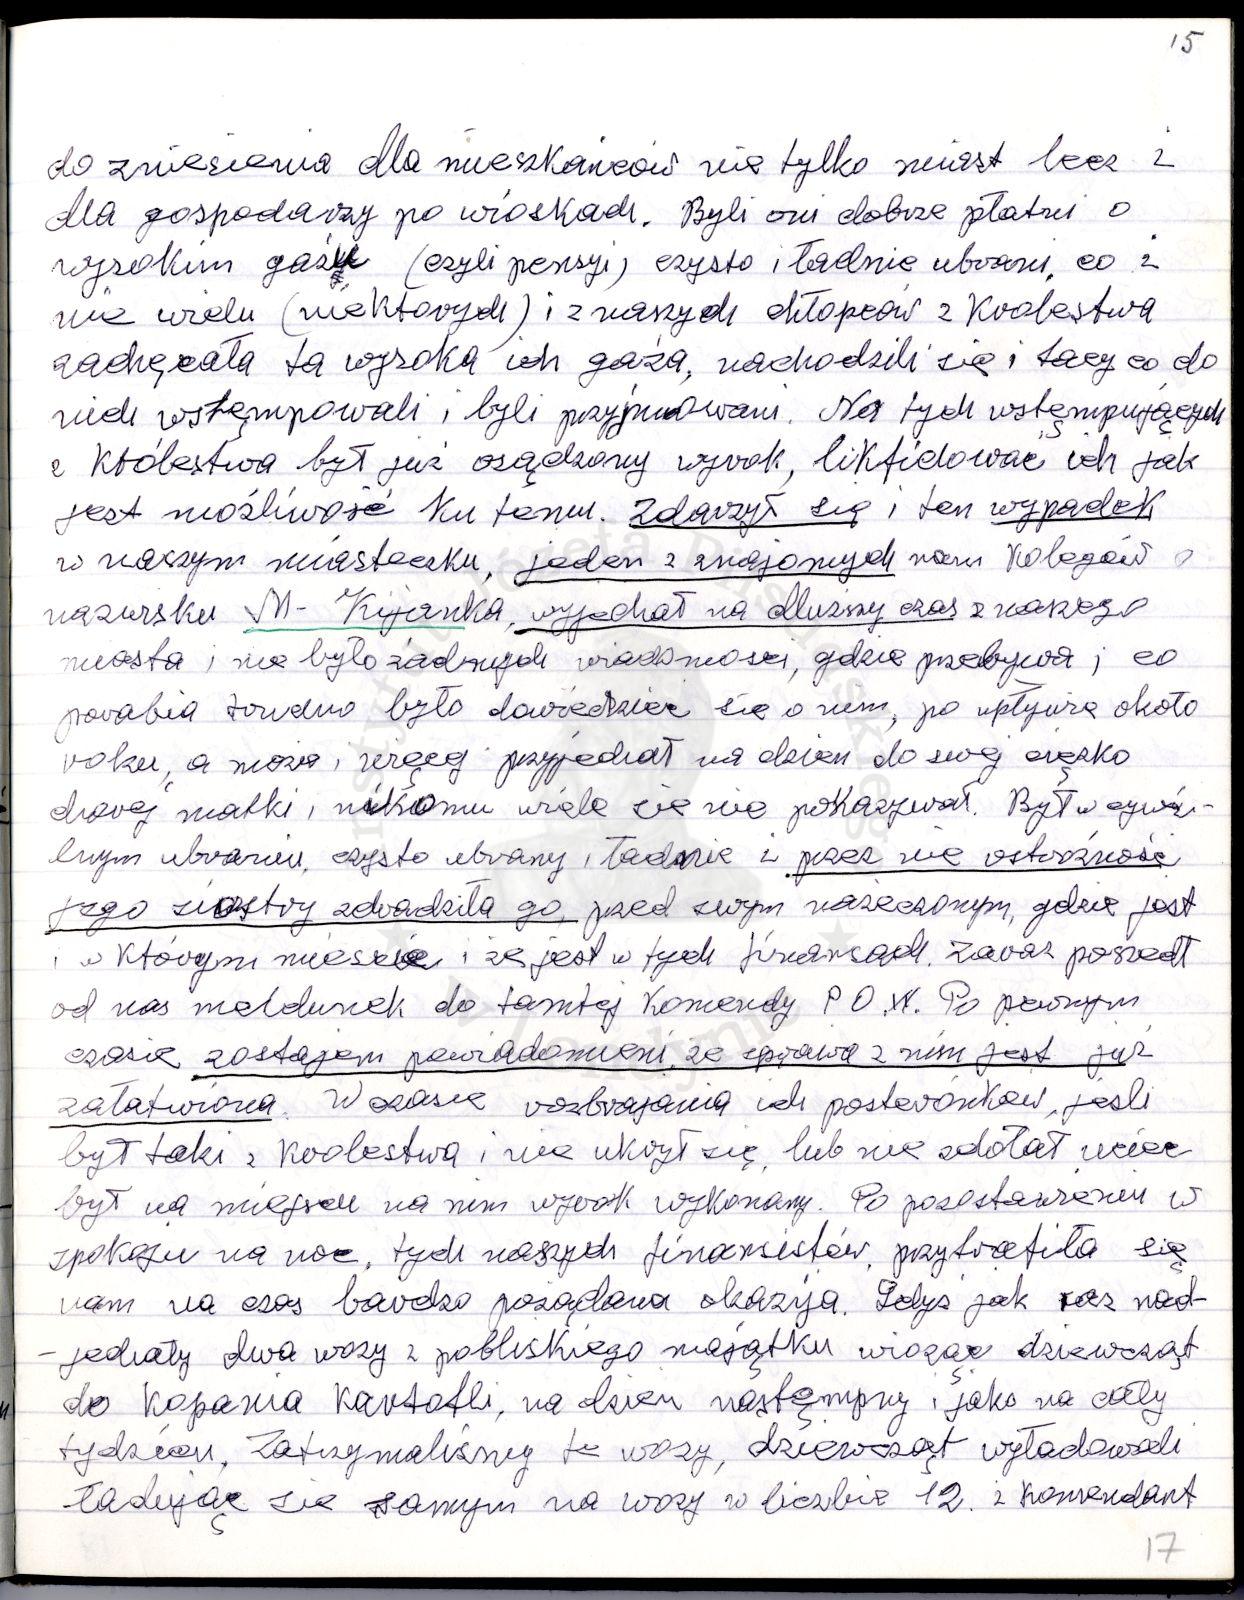 15
do zniesienia dla mieszkańców nie tylko miast lecz i
dla gospodarzy po wioskach. Byli oni dobrze płatni o
wysokim gażu (czyli pensyi) czysto i ładnie ubrani, co i
nie wielu (niektorych) i z naszych chłopców z Krolestwa
zachęcała ta wysoka ich gaża, nachodzili się i tacy co do
nich wstęmpowali i byli przyjmowani. Na tych wstęmpujących
z Królestwa był już osądzony wyrok, likfidować ich jak
jest możliwość ku temu. Zdarzył się i ten wypadek
w naszym miasteczku, jeden z znajomych nam kolegów o
nazwisku M- Kijanka, wyjechał na dłuższy czas z naszego
miasta i nie było żadnych wiadomości, gdzie przebywa i co
porabia trudno było dowiedzieć się o nim, po upływie około
roku, a może i więcej przyjechał na dzien do swej ciężko
chorej matki i nikomu wiele się nie pokazywał. Był w cywil-
lnym ubraniu, czysto ubrany i ładnie i przez nie ostrożność
jego siostry zdradziła go, przed swym nażeczonym, gdzie jest
i w którym mieście i że jest w tych finansach. Zaraz poszedł
od nas meldunek do tamtej Komendy P.O.W. Po pewnym
czasie zostajem powiadomieni, że sprawa z nim jest już
załatwiona. W czasie rozbrajania ich posterónków, jeśli
był taki z Krolestwa i nie ukrył się, lub nie zdołał uciec
był na miejscu na nim wyrok wykonany. Po pozostawieniu w
spokoju na noc, tych naszych finansistów, przytrafiła się
nam na czas bardzo pożądana okazija. Gdyż jak raz nad-
-jechały dwa wozy z pobliskiego majątku wioząc dziewcząt
do kopania kartofli, na dzien następny i jako na cały
tydzień, Zatrzymaliśmy te wozy, dziewcząt wyładowali
ładując się samym na wozy w liczbie 12. z Komendant
17
Instytut Józefa Piłsudskiego
w Londynie